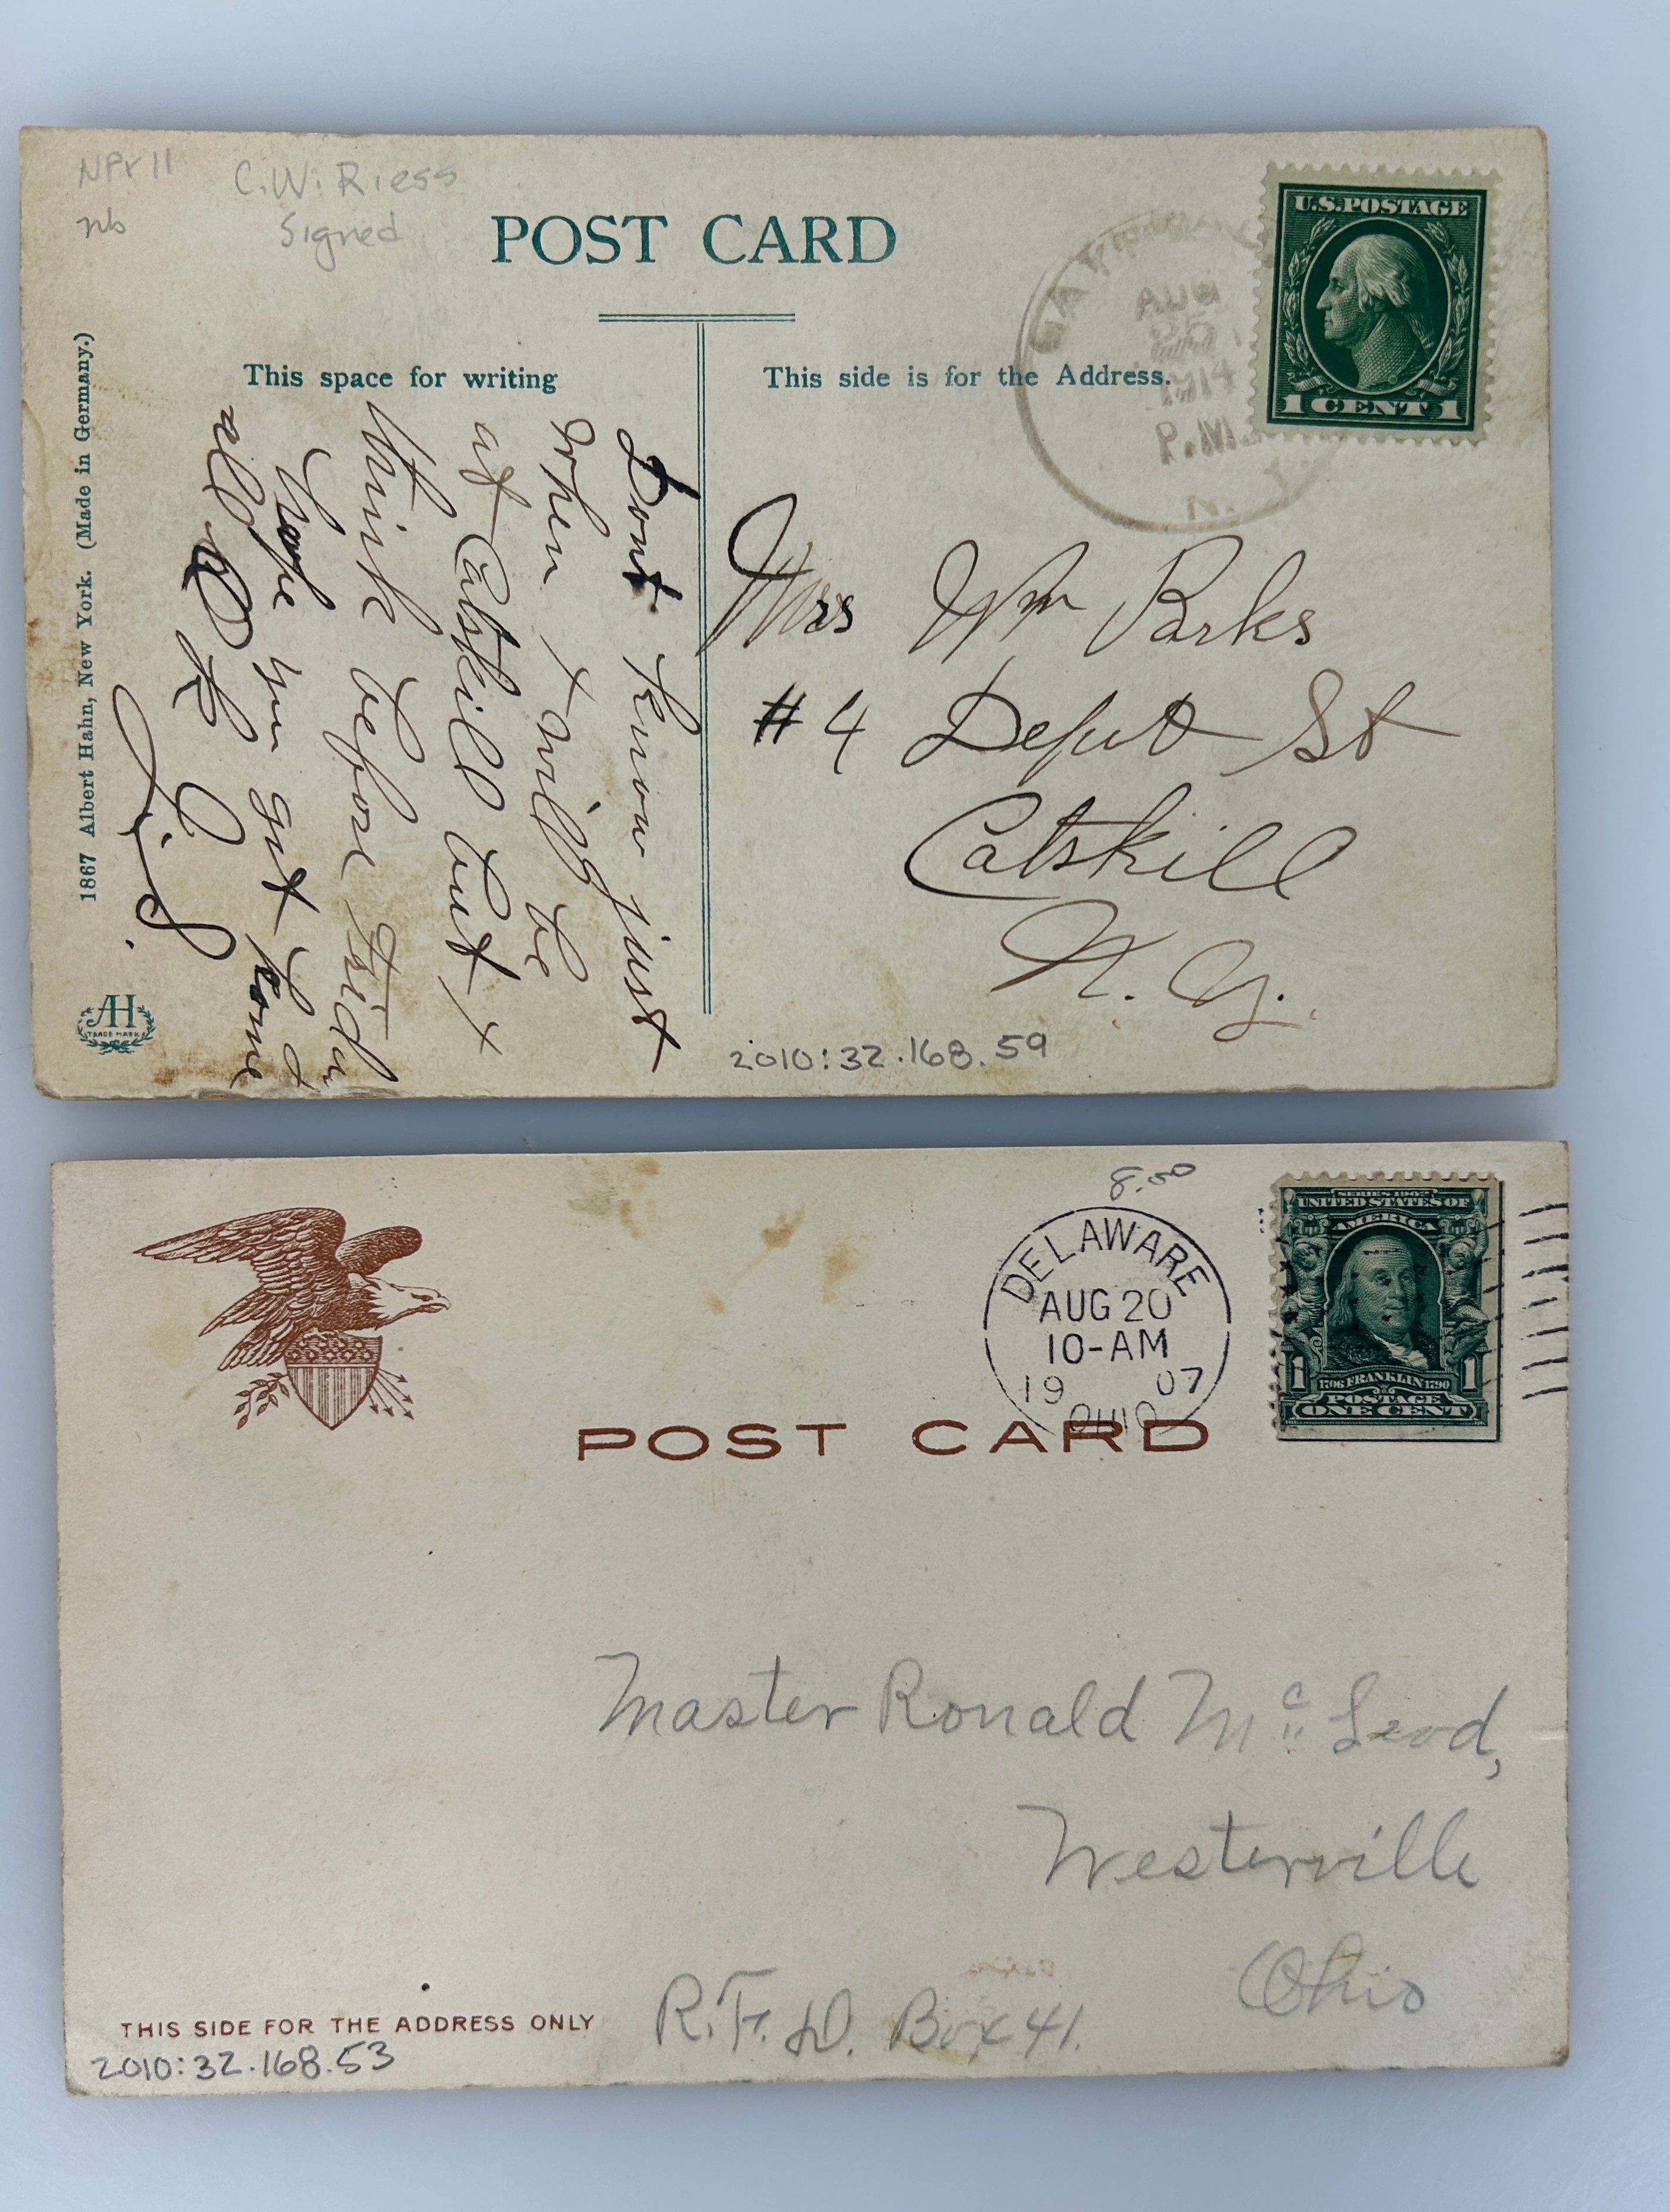 NPV 11
nb
C.W. Riess
Signed
POST CARD
U.S. POSTAGE
1 CENT 1
AUG
25
1914
P.M.
N. Y.
This space for writing
This side is for the Address.
1867 Albert Hahn, New York. (Made in Germany.)
AH
TRADE MARK
Dont know just
when I will be
at Catskill but I
think before Friday
hope you got home
all O K
Mrs Wm Parks
#4 Depot St
Catskill
N. Y.
2010:32.168.59
8.50
DELAWARE
AUG 20
10-AM
19 07
OHIO
SERIES 1902
UNITED STATES OF
AMERICA
1 1
1706 FRANKLIN 1790
POSTAGE
ONE CENT
POST CARD
Master Ronald Mc Leod,
Westerville
Ohio
R.F.D. Box 41.
THIS SIDE FOR THE ADDRESS ONLY
2010:32.168.53